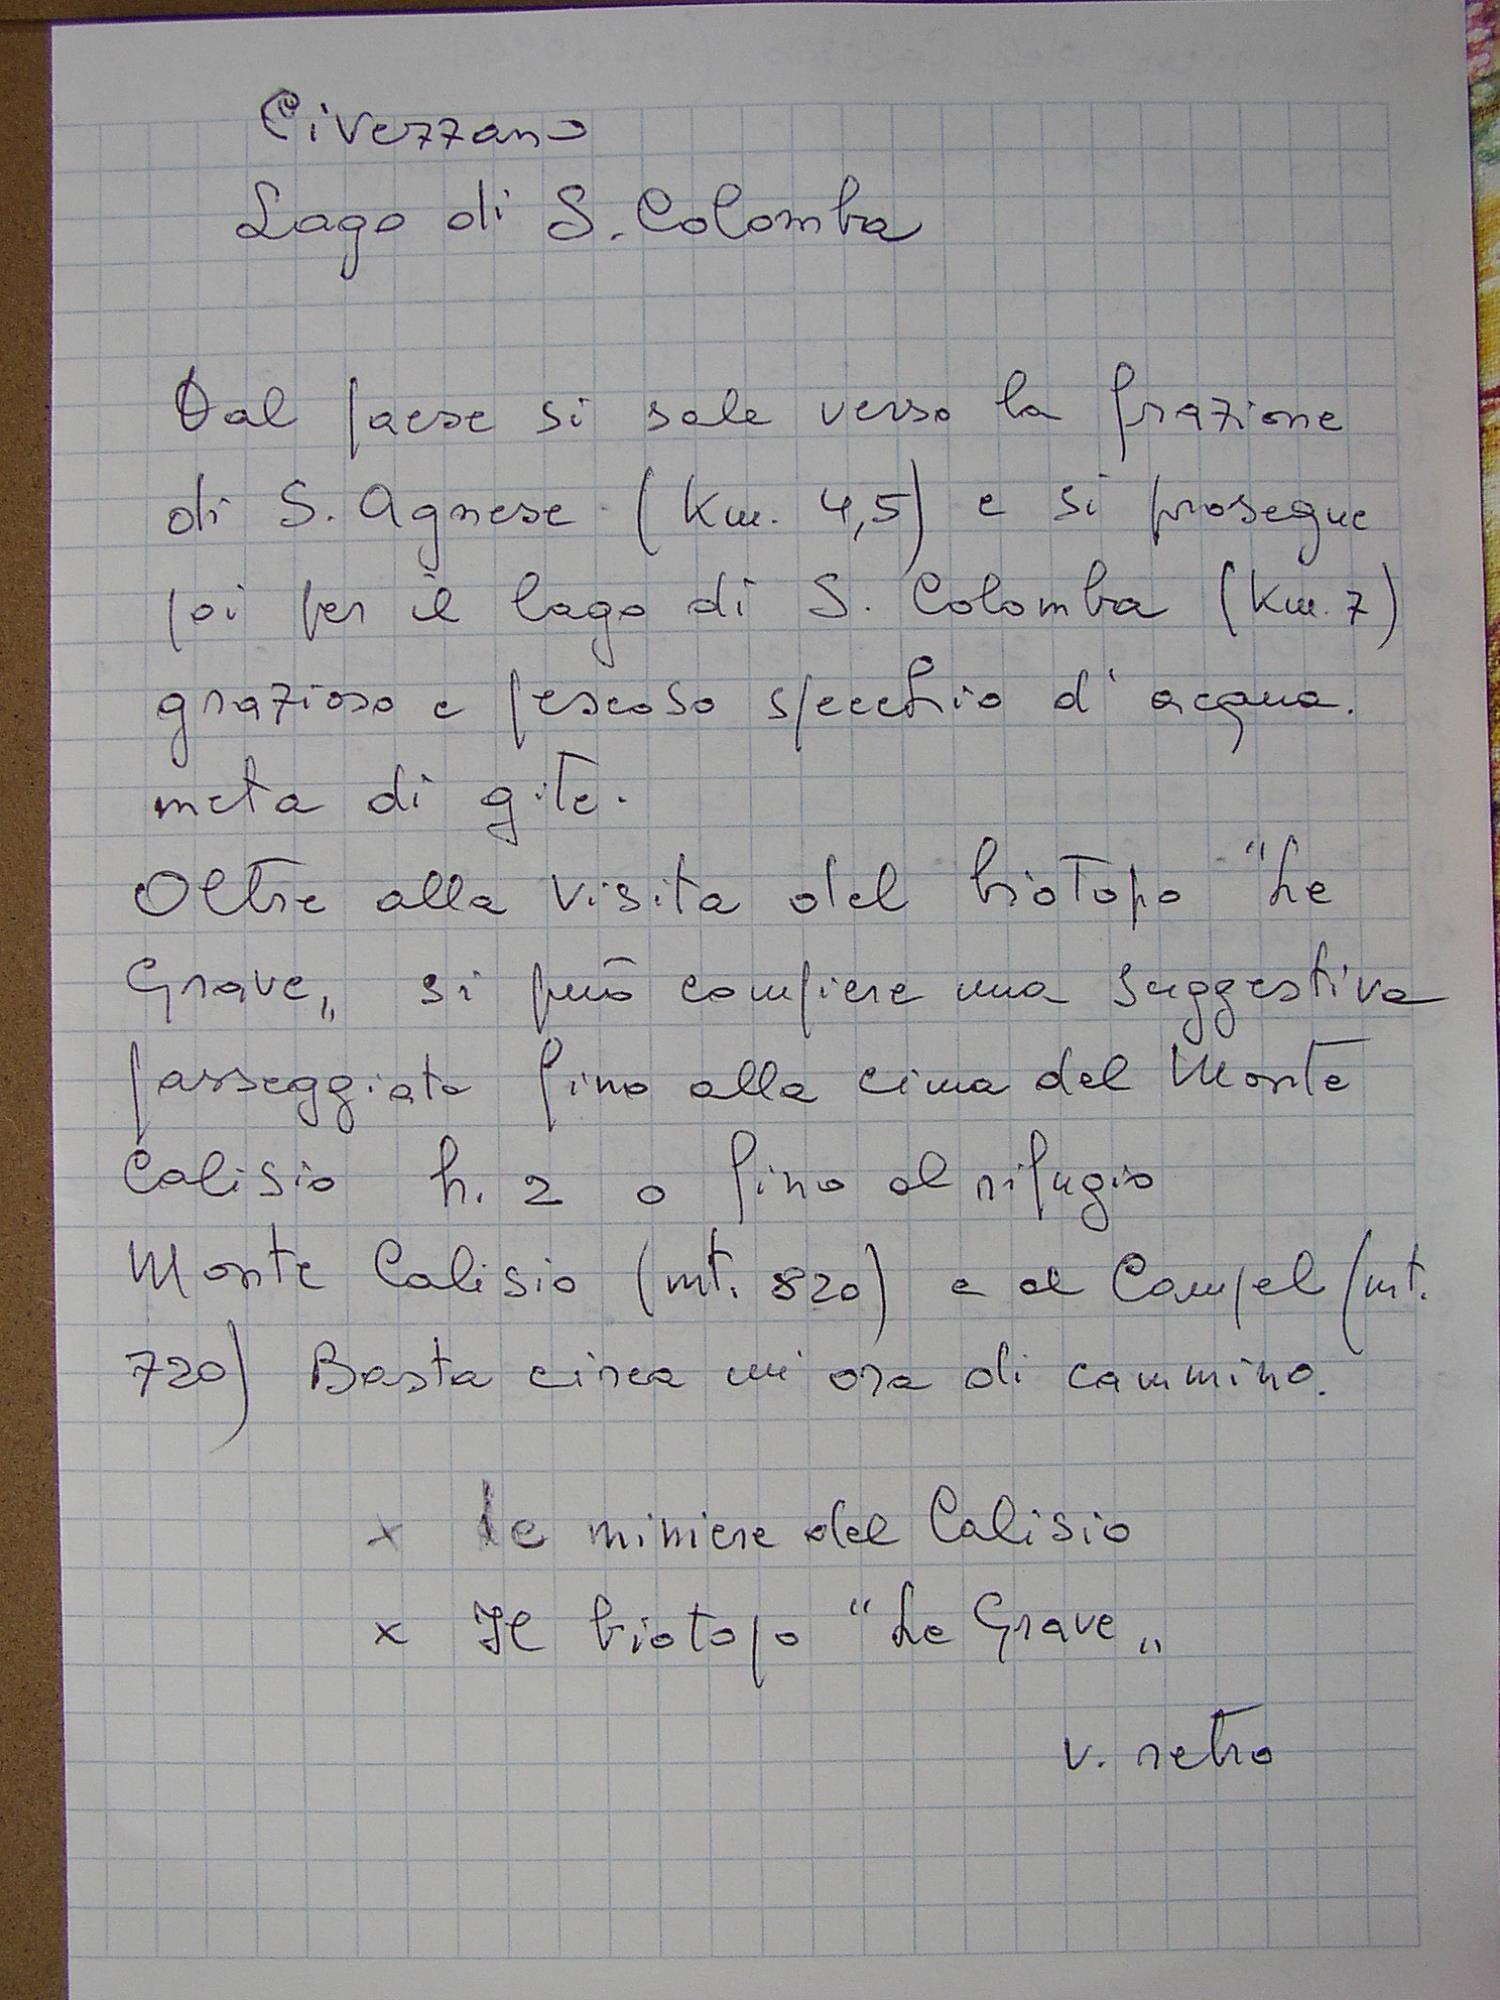 Civezzano
Lago di S. Colomba
Dal paese si sale verso la frazione
di S. Agnese (Km. 4,5) e si prosegue
poi per il lago di S. Colomba (Km. 7)
grazioso e pescoso specchio d'acqua.
meta di gite.
Oltre alla visita del biotopo "Le
Grave„ si può compiere una suggestiva
passeggiata fino alla cima del Monte
Calisio h. 2 o fino al rifugio
Monte Calisio (mt. 820) e al Campel (mt.
720) Basta circa un'ora di cammino.
x le miniere del Calisio
x Il biotopo "Le Grave„
v. retro